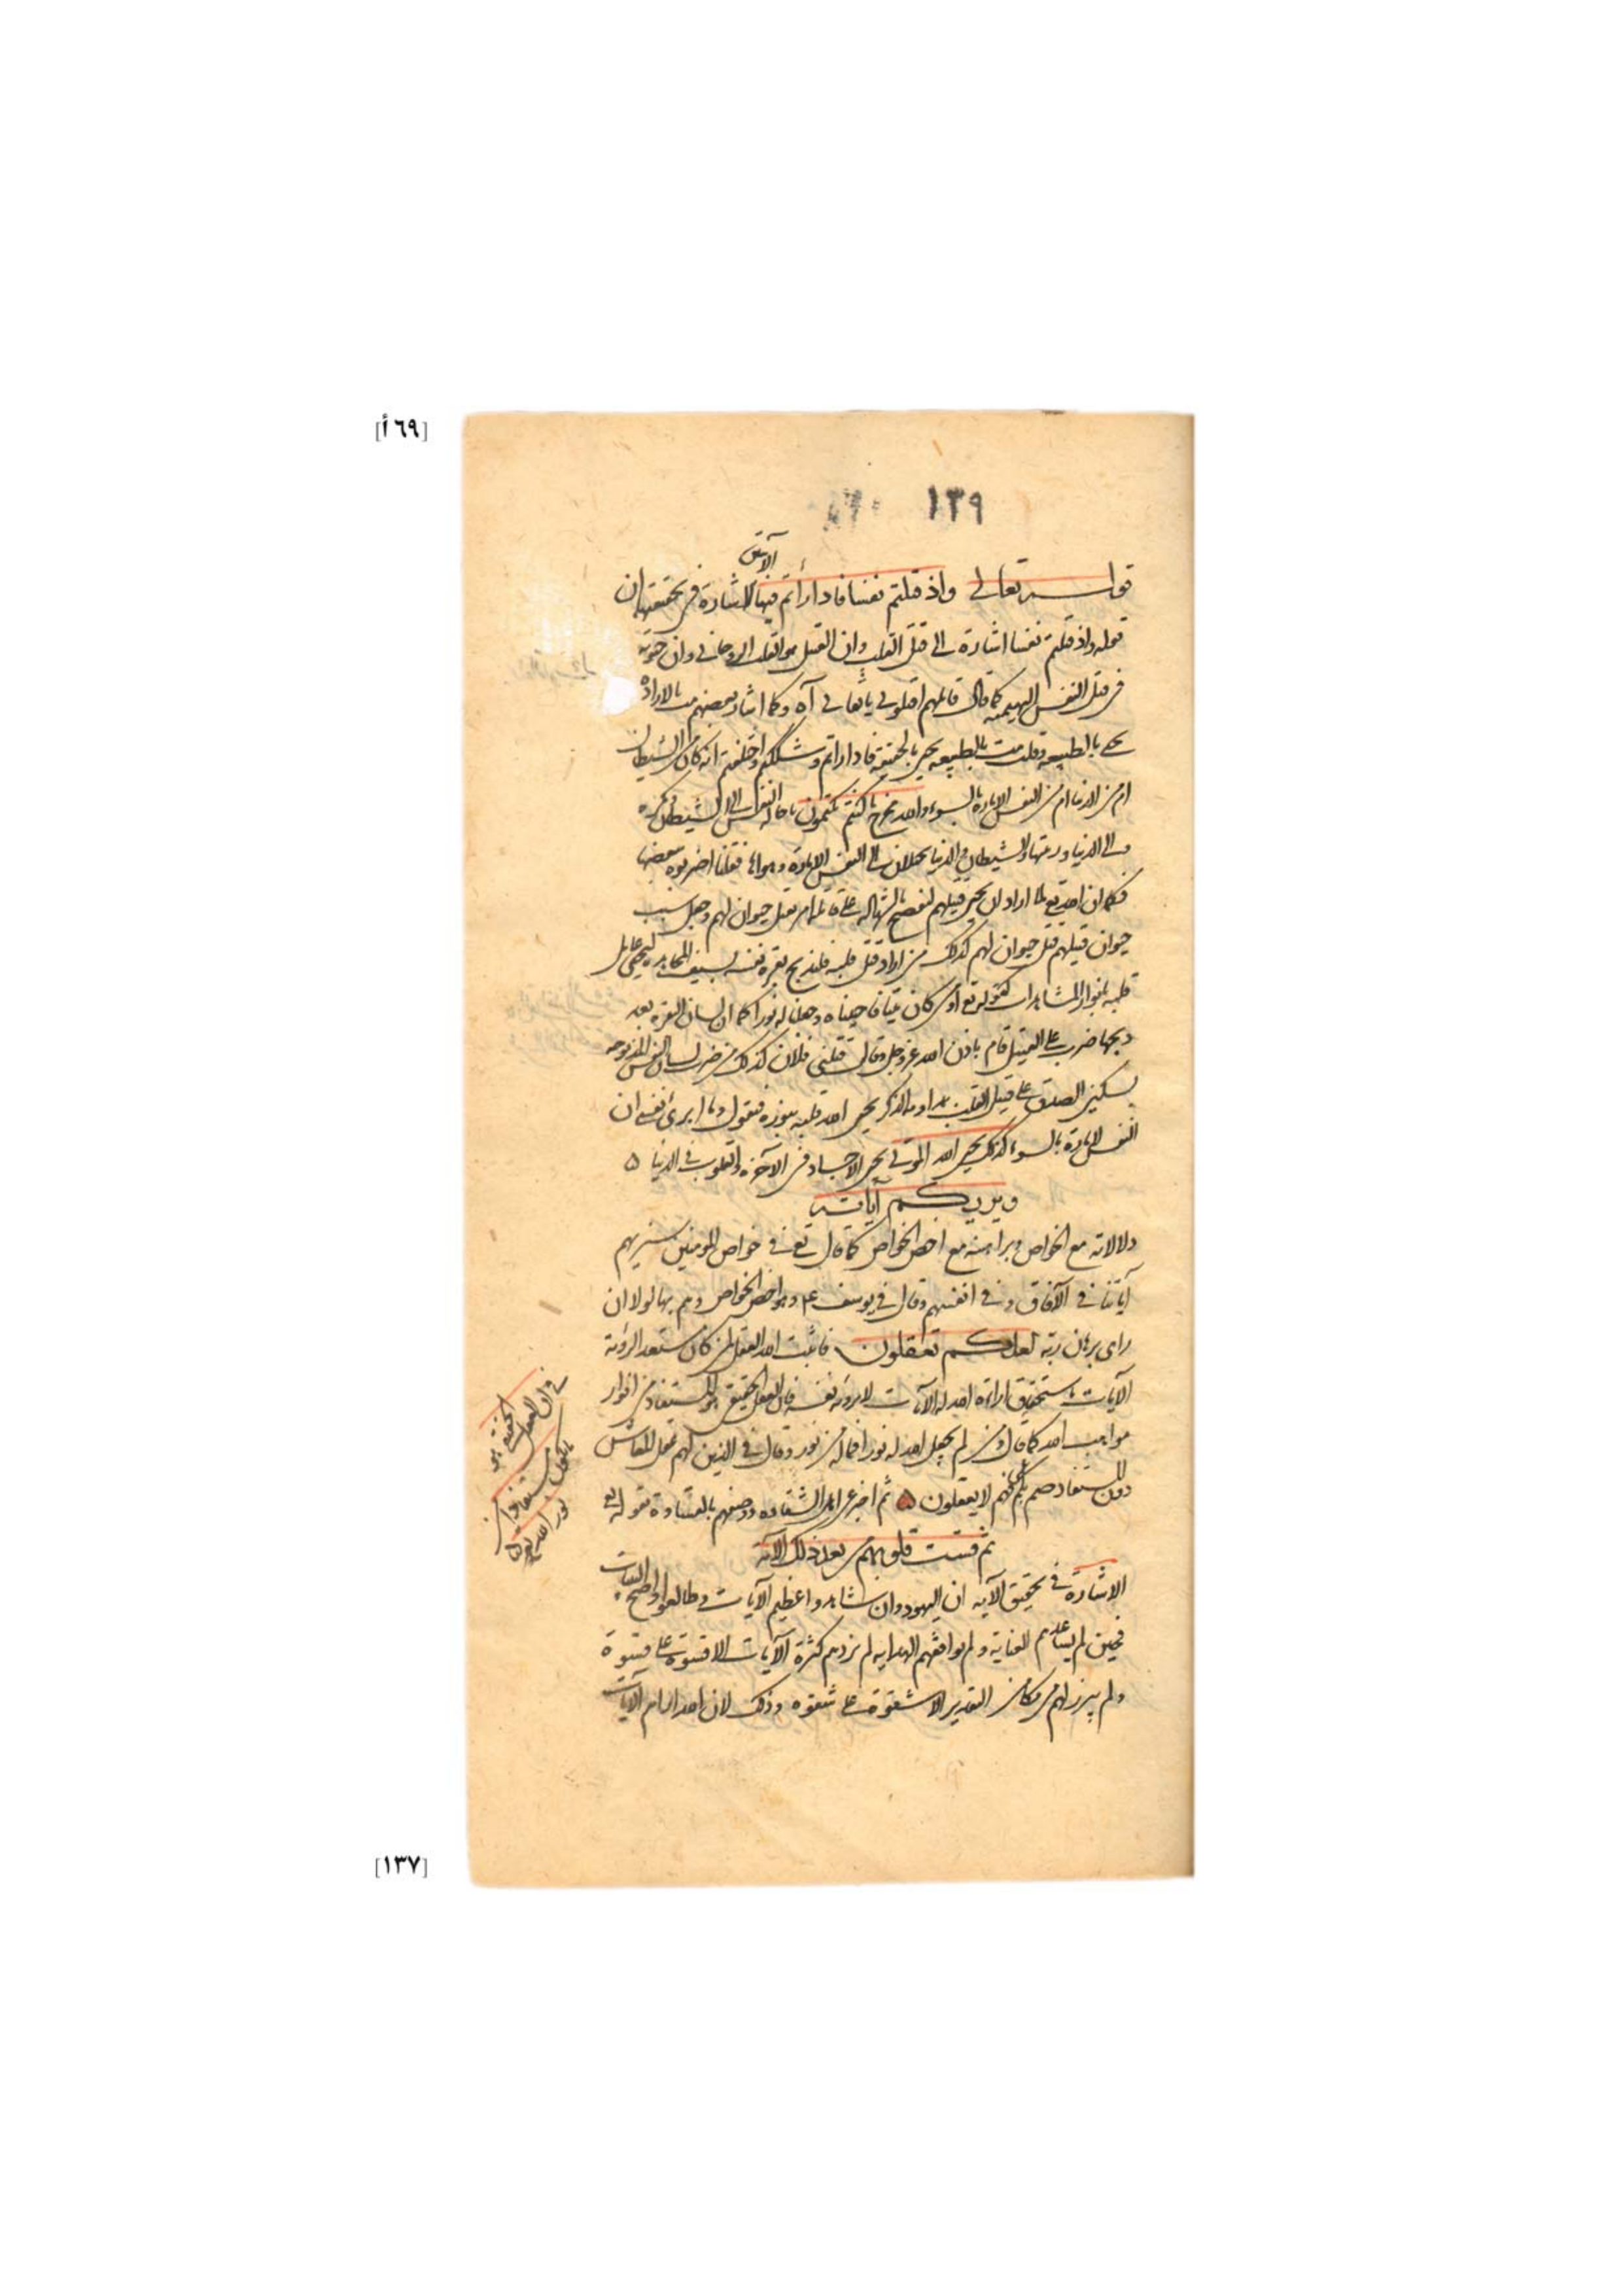 [٦٩ أ]
١٣٩
الآيتين
قوله تعالى واذ قتلتم نفسا فادارأتم فيها الاشارة في تحقيقها ان
قوله واذ قتلتم نفسا اشارة الى قتل القلب وان القتيل هو القلب الروحاني وان حيوته
في قتل النفس البهيمية كما قال قائلهم اقتلوني يا ثقاتي آه وكما اشار بعضهم مت بالارادة
تحي بالطبيعة وقلت مت بالطبيعة تحي بالحقيقة فادارأتم وشككتم واختلفتم انه كان من الشيطان
ام من الدنيا ام من النفس الامارة بالسوء والله مخرج ما كنتم تكتمون باحالة النفس الى الشيطان ومكره
والى الدنيا وزينتها والشيطان والدنيا يحيلان الى النفس الامارة وهواها فقلنا اضربوه ببعضها
فكما ان الله تع لما اراد ان يحيي قتيلهم ليفصح بالشهادة على قاتله امر بقتل حيوان لهم وجعل سبب
حيوان قتيلهم قتل حيوان لهم كذلك من اراد قتل قلبه فليذبح بقرة نفسه بسيف المجاهدة ليحيي
قلبه بانوار المشاهدات كقوله تع اومن كان ميتا فاحييناه وجعلنا له نورا كما ان لسان البقرة بعد
ذبحها ضرب على القتيل قام باذن الله عز وجل وقال قتلني فلان كذلك من ضرب لسان النفس المذبوحة
بسكين الصدق على قتيل القلب بمداومة الذكر يحيي الله قلبه بنوره فيقول وما ابرئ نفسي ان
النفس لامارة بالسوء كذلك يحيي الله الموتى يحيي الاجساد في الآخرة والقلوب في الدنيا ه
ويريكم آياته
دلالاته مع الخواص وبراهينه مع اخص الخواص كما قال تع في خواص المومنين سنريهم
آياتنا في الآفاق وفي انفسهم وقال في يوسف عم وهو اخص الخواص وهم بها لولا ان
راى برهان ربه لعلكم تعقلون فاثبت الله العقل لمن كان مستعد الرؤية
الآيات باستحقاق اراءة الله له الآيات لا برؤية نفسه فان العقل الحقيقي هو المستفاد من انوار
مواهب الله كما قال ومن لم يجعل الله له نورا فما له من نور وقال في الذين لهم عقل المعاش
دون المستفاد صم بكم عمي فهم لا يعقلون ه ثم اخبر عن اهل الشقاوة ووصفهم بالقساوة بقوله تع
ثم قست قلوبهم من بعد ذلك الآية
الاشارة في تحقيق الآية ان اليهود وان شاهدوا عظيم الآيات وطالعوا واضح البينات
فحين لم يساعدهم العناية ولم يوافقهم الهداية لم يزدهم كثرة الآيات الا قسوة على قسوة
ولم يبرز لهم من مكامن التقدير الا شقوة على شقوة وذلك لان الله اراهم الآيات
في ان العقل
الحقيقي هو
ما يكون
مستفادا من
نور الله تعالى
[١٣٧]